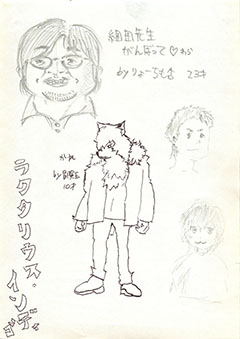 細田先生
がんばって♡ねっ
by りょーちもさ 23才
かれ
10才
ラクタリウス・
インディゴ